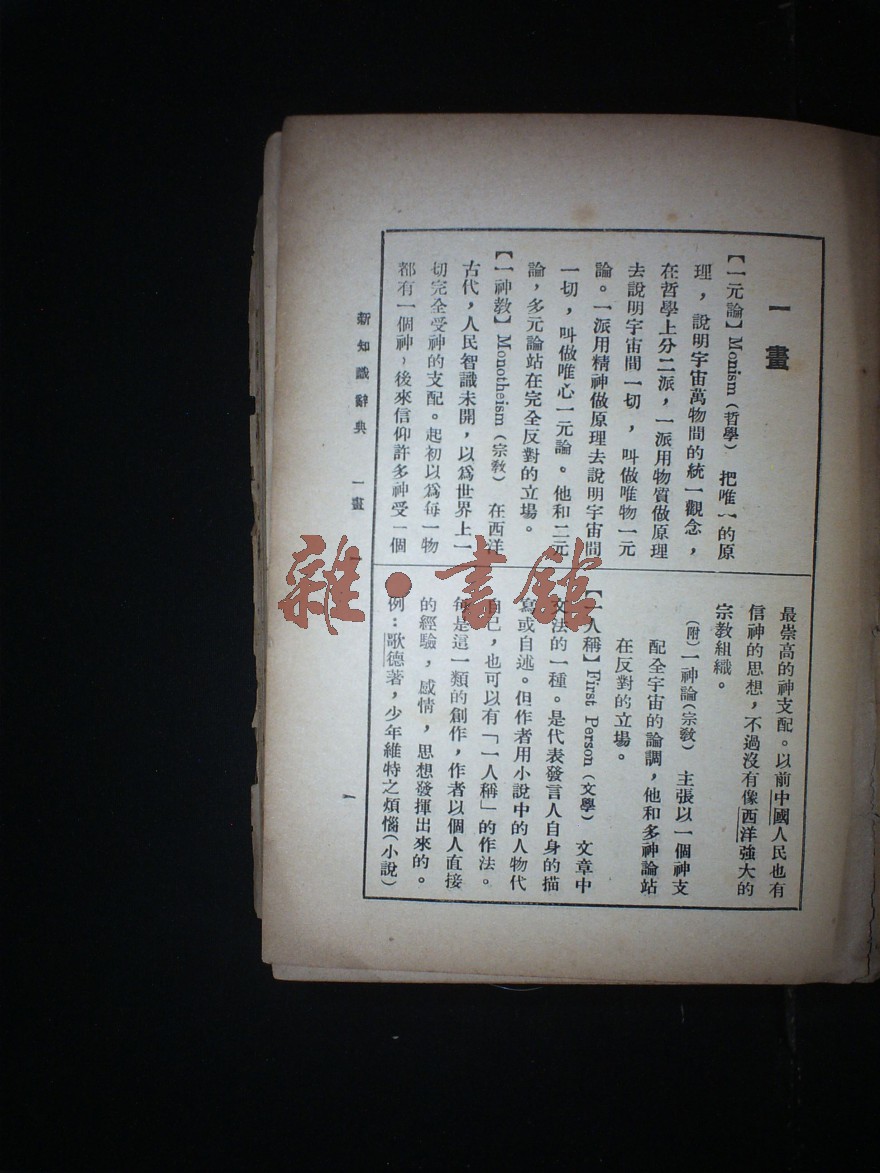 一畫
【一元論】Monism(哲學) 把唯一的原
理,說明宇宙萬物間的統一觀念,
在哲學上分二派,一派用物質做原理
去說明宇宙間一切,叫做唯物一元
論。一派用精神做原理去說明宇宙間
一切,叫做唯心一元論。他和二元
論,多元論站在完全反對的立場。
【一神教】Monotheism(宗教) 在西洋
古代,人民智識未開,以爲世界上一
切完全受神的支配。起初以爲每一物
都有一個神,後來信仰許多神受一個
最崇高的神支配。以前中國人民也有
信神的思想,不過沒有像西洋強大的
宗教組織。
(附)一神論(宗教) 主張以一個神支
配全宇宙的論調,他和多神論站
在反對的立場。
【一人稱】First Person(文學) 文章中
文法的一種。是代表發言人自身的描
寫或自述。但作者用小說中的人物代
自己,也可以有「一人稱」的作法。
每是這一類的創作,作者以個人直接
的經驗,感情,思想發揮出來的。
例:歌德著,少年維特之煩惱(小說)
新知識辭典 一畫
一
雜·書館